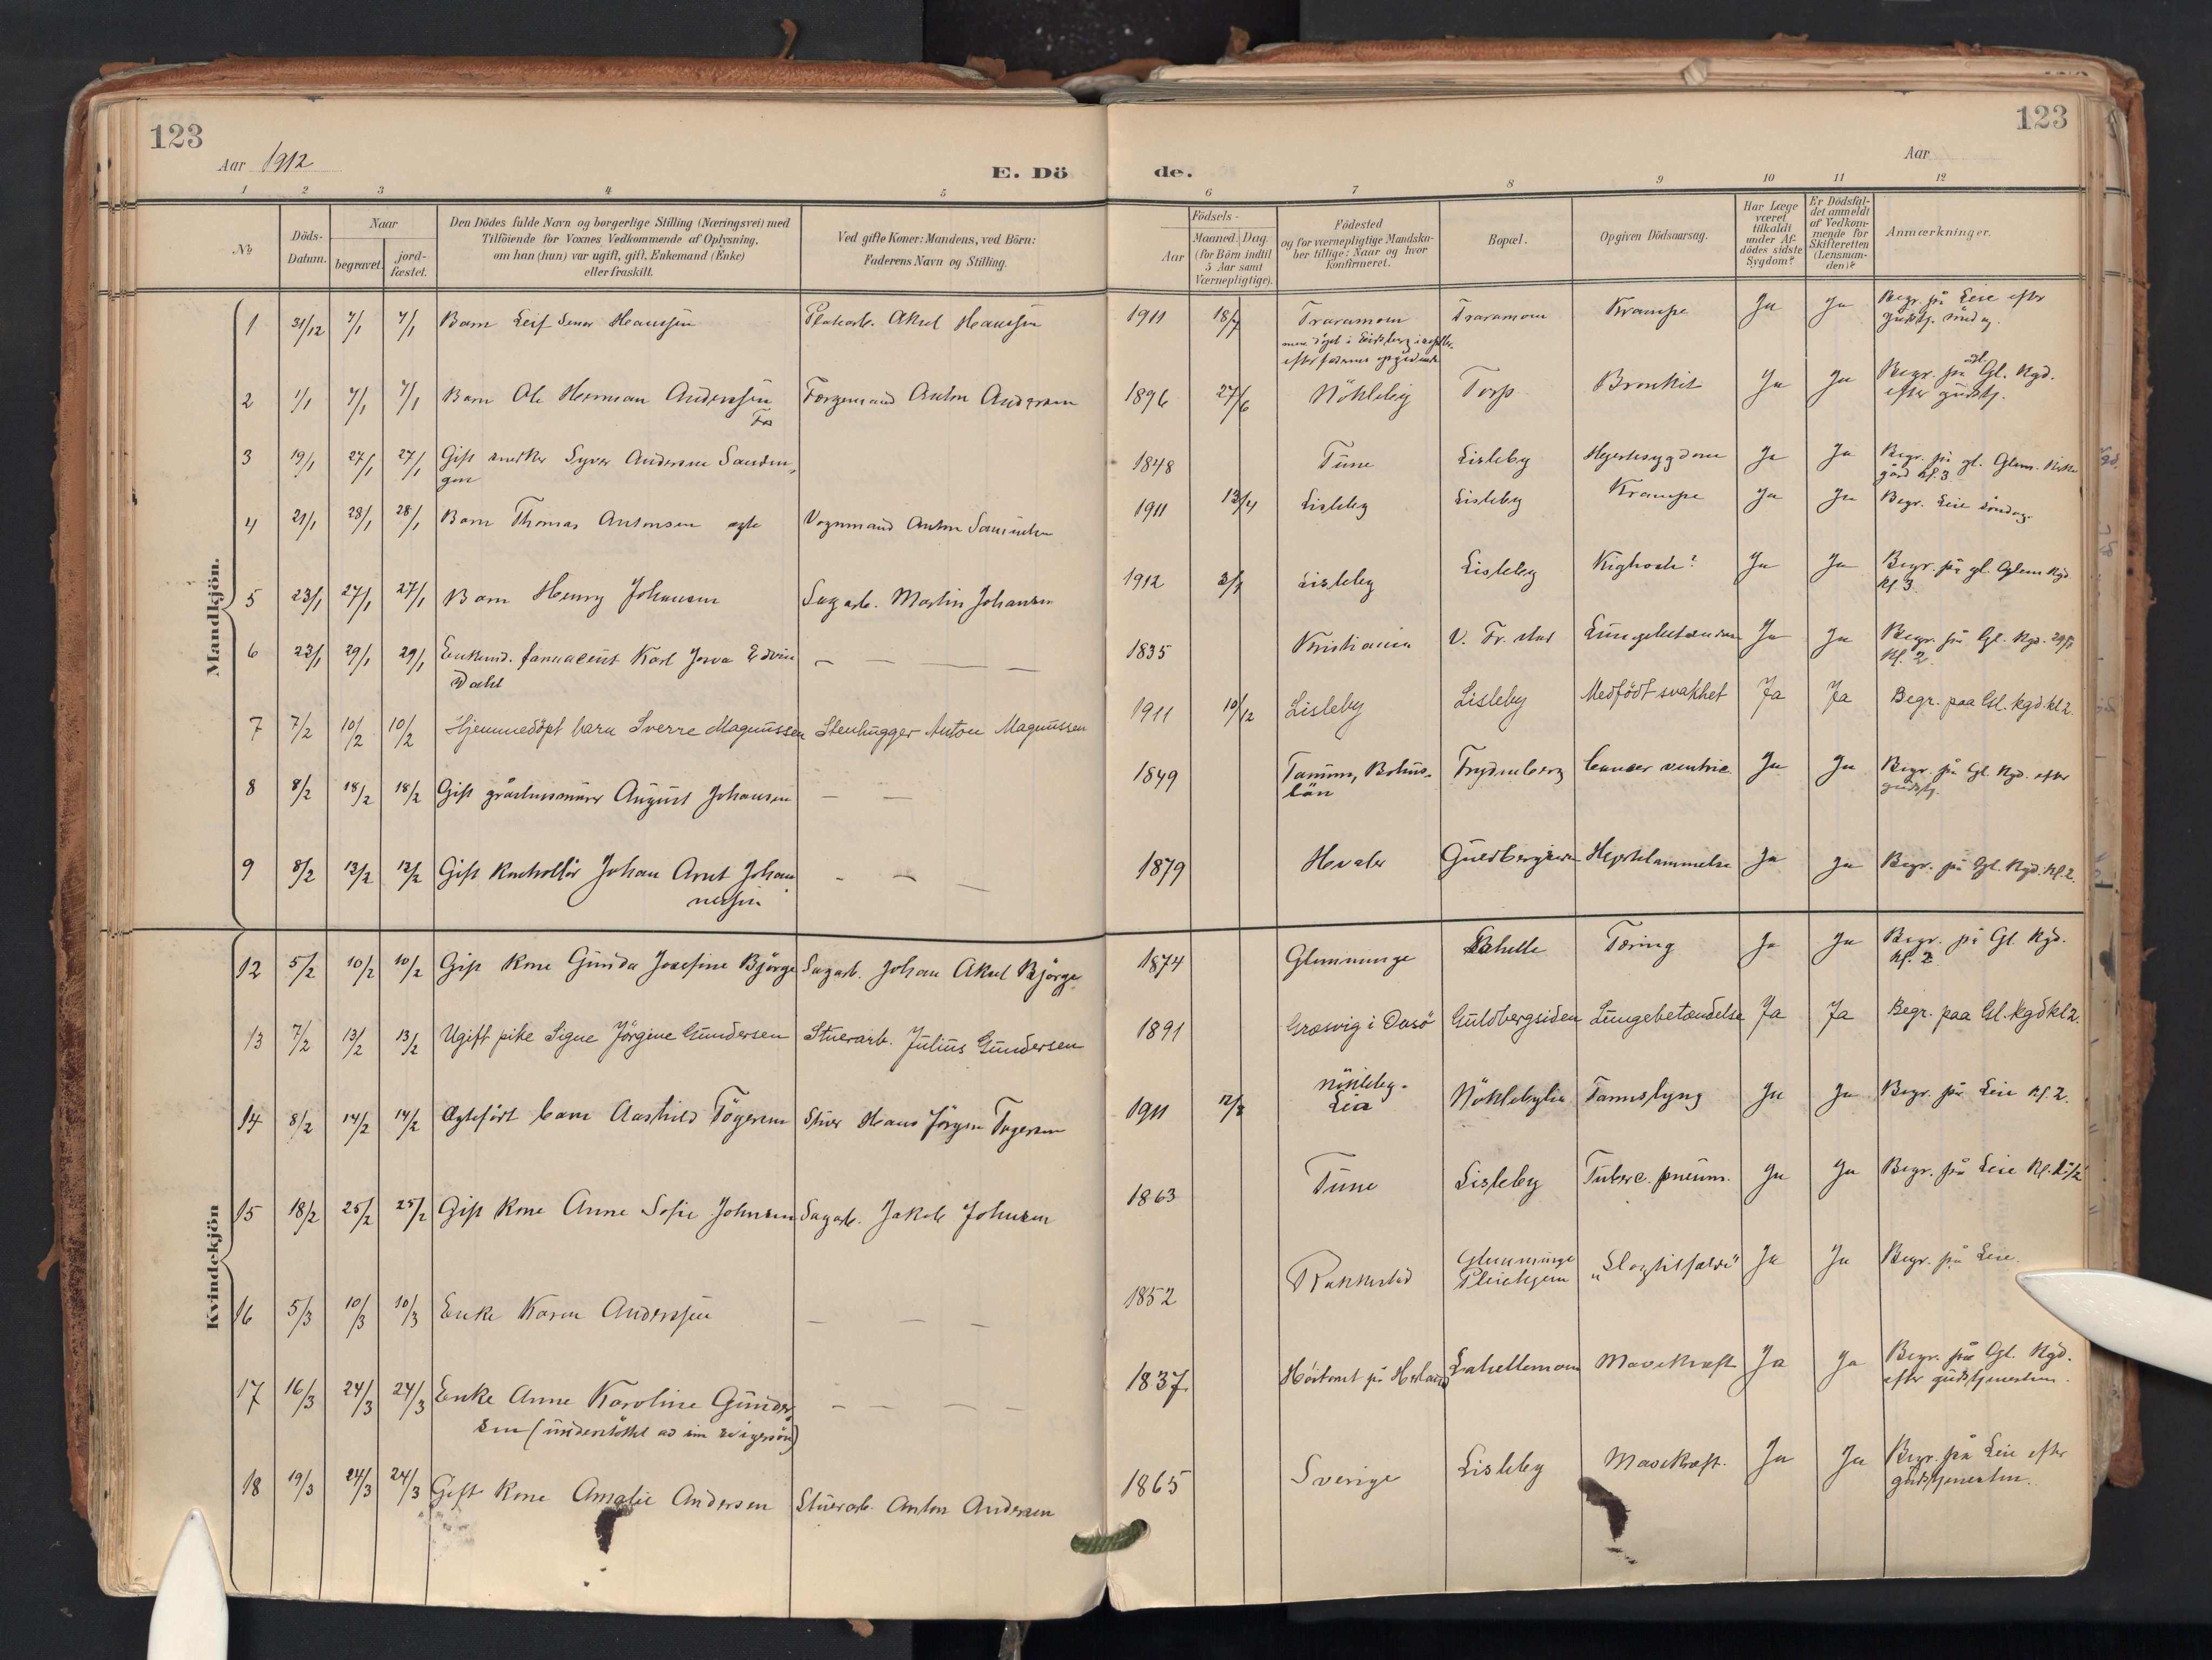 123
123
Aar 1912
E. Dö
de.
Aar
1 2 3 4 5 6 7 8 9 10 11 12
No
Döds-Datum.
Naar
begravet.
jord-fæstet.
Den Dödes fulde Navn og borgerlige Stilling (Næringsvei) med
Tilföiende for Voxnes Vedkommende af Oplysning,
om han (hun) var ugift, gift, Enkemand (Enke)
eller fraskilt.
Ved gifte Koner: Mandens, ved Börn:
Faderens Navn og Stilling.
Födsels-
Aar
Maaned. Dag.
(for Börn indtil
5 Aar samt
Værnepligtige).
Födested
og for værnepligtige Mandska-
ber tillige: Naar og hvor
konfirmeret.
Bopæl.
Opgiven Dödsaarsag.
Har Læge
været
tilkaldt
under Af-
dödes sidste
Sygdom?
Er Dödsfal-
det anmeldt
af Vedkom-
mende for
Skifteretten
(Lensman-
den)?
Anmærkninger.
Mandkjön.
1 31/12 7/1 7/1 Barn Leif Hanssen Aksel Hanssen 1911 18/7 Traramoen Traramoen Krampe Ja Ja Begr. på Leie efter
gudstj. søndag.
2 1/1 7/1 7/1 Barn Ole Herman Anderssen Formand Anton Andersen 1896 27/6 Nökleby Torp Bronkit Ja Ja Begr. på Gl. Kgd.
efter gudstj.
3 19/1 27/1 27/1 Gift snekker Syver Andersen 1848 Tune Lisleby Hjertesygdom Ja Ja Begr. på gl. Glem. Kirke
gård kl. 3
4 21/1 28/1 28/1 Barn Thomas Antonsen ægte Vognmand Anton Samuelsen 1911 13/4 Lisleby Lisleby Krampe Ja Ja Begr. Leie søndag.
5 23/1 27/1 27/1 Barn Henry Johansen Sagarb. Martin Johansen 1912 Lisleby Lisleby Kighoste? Ja Ja Begr. på gl. Glem Kgd
kl. 3
6 22/1 29/1 29/1 Enkemd. farmaceut Karl Edvin
Dahl
1835 Kristiania V. Fr.stad Lungebetændelse Ja Ja Begr. på Gl. Kgd. 29/1
kl. 2
7 7/2 10/2 10/2 Hjemmedöpt barn Sverre Magnussen Stenhugger Anton Magnussen 1911 10/12 Lisleby Lisleby Medfödt svakhet Ja Ja Begr. paa Gl. kgd. kl 2.
8 8/2 18/2 18/2 Gift August Johansen — — 1849 Tanum, Bohus-
län Frydenberg Cancer ventric. Ja Ja Begr. på Gl. Kgd. efter
gudstj.
9 8/2 12/2 12/2 Gift Kontrollör Johan Arnt Johan
nessen
— — — 1879 Hvaler Guldbergsiden Hjertelammelse Ja Ja Begr. på Gl. Kgd. kl. 2.
Kvindekjön
12 5/2 10/2 10/2 Gift Kone Gunda Josefine Björge Sagarb. Johan Aksel Björge. 1874 Glemminge Tæring Ja Ja Begr. på Gl. Kgd.
kl. 2
13 7/2 13/2 13/2 Ugift pike Signe Jörgine Gundersen Stuerarb. Julius Gundersen 1891 Græsvig i Onsö Guldbergsiden Lungebetændelse Ja Ja Begr. paa Gl. kgd kl 2.
14 8/2 14/2 14/2 Ægtefödt barn Aashild Tögersen Stuer Hans Jörgen Tögersen 1911 Nökleby-
Lia Nöklebylia Ja Ja Begr. på Leie kl. 2.
15 18/2 25/2 25/2 Gift Kone Anne Sofie Johnsen Sagarb. Jakob Johnsen 1863 Tune Lisleby Tuberc. pneum. Ja Ja Begr. på Leie
16 5/3 10/3 10/3 Enke Karen Anderssen — — — 1852 Rakkestad Glemminge
Pleiehjem "Slagtilfælde" Ja Ja Begr. på Leie.
17 16/3 24/3 24/3 Enke Anne Karoline Gunder
sen (understöttet av sin svigersön)
— — — — 1837 Labellemoen Mavekræft Ja Ja Begr. på Gl. Kgd.
efter gudstjenesten.
18 19/3 24/3 24/3 Gift Kone Amalie Andersen Stuerarb. Anton Andersen 1865 Sverige Lisleby Mavekræft. Ja Ja Begr. på Leie efter
gudstjenesten.